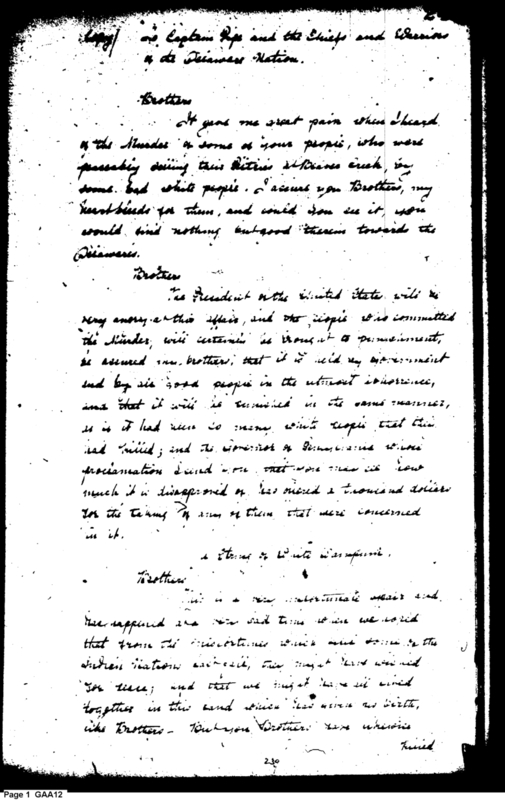 Copy) To Captain Pipe and the Chiefs and Warriors
of the Delaware Nation.
Brothers
It gave me great pain when I heard
of the Murder of some of your people, who were
peaceably selling their at Beaver Creek, by
some bad white people. I assure you Brothers, my
heart bleeds for them, and could you see it, you
would find nothing but good therein towards the
Delawares.
Brothers
The President of the United States will be
very angry at this affair, and the people who committed
the Murder, will certainly be brought to punishment,
be assured my brothers, that it is held by government
and by all good people in the utmost abhorrence,
and that it will be punished in the same manner,
as if it had been so many white people that they
had killed; and the Governor of Pennsylvania whose
proclamation I send you, that you may see how
much it is disapproved of has offered a thousand dollars
for the taking of any of them that were concerned
in it.
a String of White Wampum.
Brothers
This is a very unfortunate affair and
has happened at a very bad time when we hoped
that from the misfortunes which some of the
Indian Nations they might have wished
for peace; and that we might have all lived
together in this land which has given us birth,
like Brothers - But you Brothers have
killed
230
Page 1 GAA12